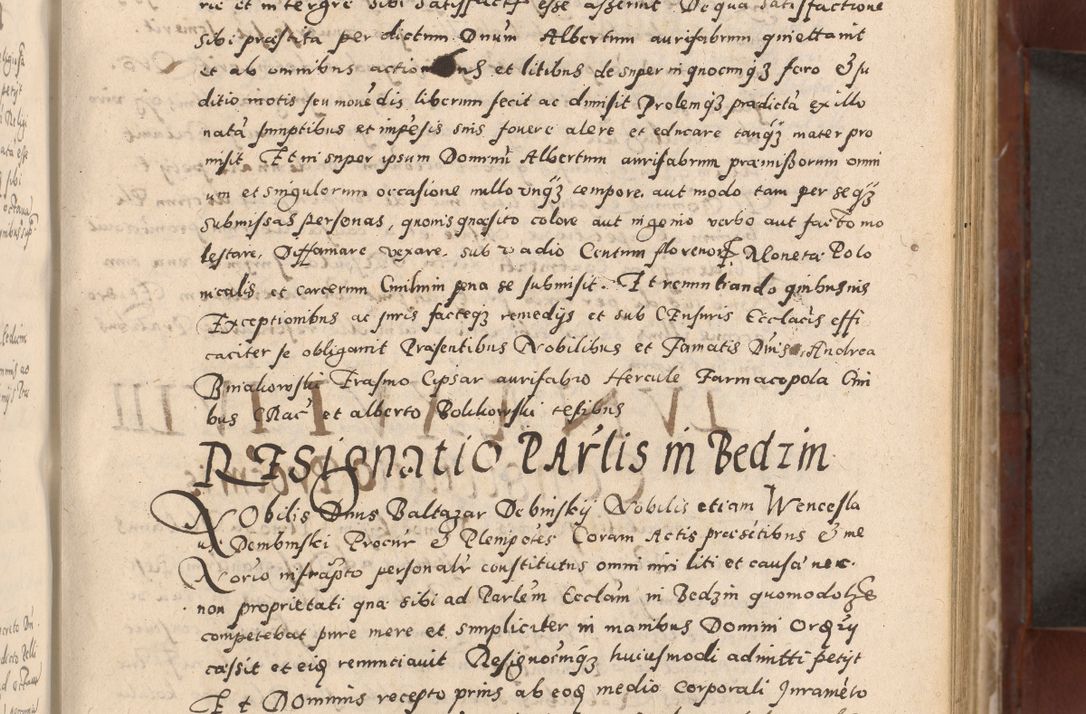 rie et integre sibi satisffactũ esse asserunt De qua satisffactione
sibi præstita per dictum Dnum Albertum aurifabrum quiettauit
et ab omnibus et litibus de super in quocunqȝ foro & iu
ditio motis seu mouẽdis liberum fecit ac dimisit Prolemqȝ prædictã ex illo
natã sumptibus et impẽsis suis fouere alere et educare tanqȝ mater pro
misit. Et in super ipsum Dominũ Albertum aurifabrum præmissorum omni
um et singulorum occasione nullo vnqȝ tempore. aut modo tam per se qȝ
submissas personas, quouis quæsito colore aut ingenio verbo aut facto mo
lestare, Diffamare vexare. sub vadio Centum florenorꝝ Moneta Polo
nicalis et carcerum Ciuilium pena se submisit. Et renuntiando quibusuis
Exceptionibus ac iuris factiqȝ remedijs et sub CEnsuris Ecclacis effi
caciter se obligauit Præsentibus Nobilibus et Famatis Dnis Andrea
Erasmo Cipsar aurifabro Hercule Farmacopola Ciui
bus CRac̃ et alberto Bolikowski testibus
RESignatio PARtis in Bedzin
NObilis Dnus Baltazar Debinskij Nobilis etiam Wencesla
us Dembinski Procur̃ & Plenipotẽs Coram Actis præsẽtibus & me
Notorio infrapto personalr̃ constitutus omni iuri liti et causæ nec.
non proprietati quæ sibi ad Parlẽm Ecclam in Bedzin quomodolȝ
competebat pure mere et simpliciter in manibus Domini
cassit et renuntiauit Resignoẽmqȝ huiusmodi admitti petijt
Et Dominus recepto prius ab eoqȝ medio corporali Juramẽto